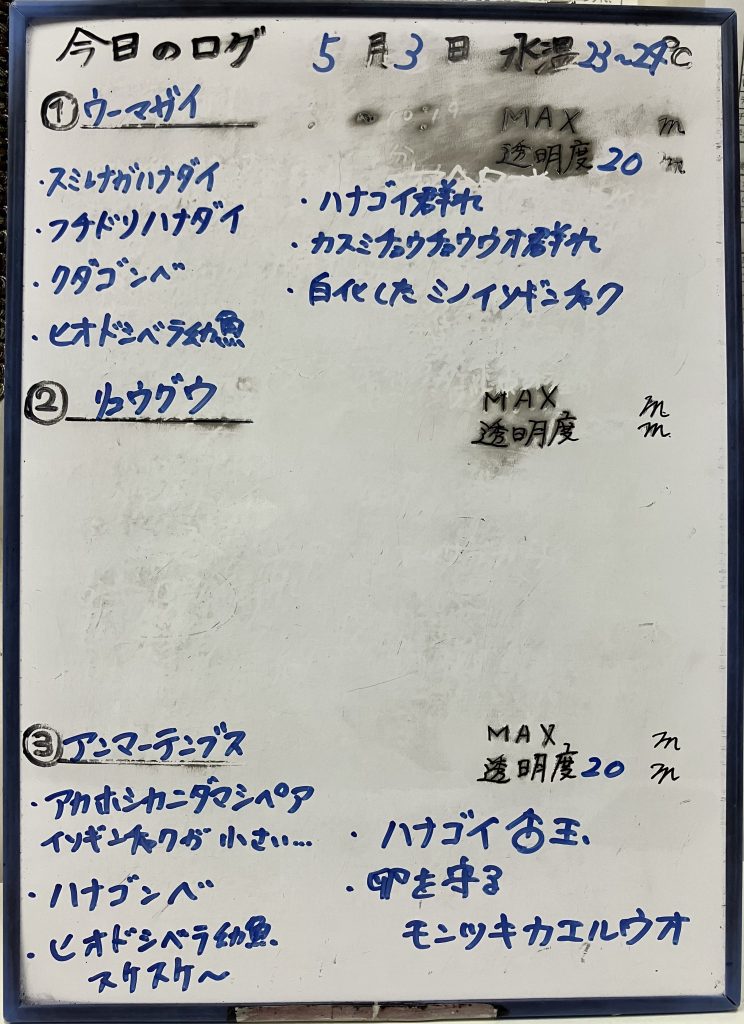 今日のログ 5月3日 水温23~24℃
①ウーマガイ MAX m
透明度20m
・スミレナガハナダイ
・フチドリハナダイ
・クダゴンベ
・ヒオドシベラ幼魚
・ハナゴイ群れ
・カスミチョウチョウウオ群れ
・白化したミノイソギンチャク
②リュウグウ MAX m
透明度 m
③アンマーテンブス MAX m
透明度20m
・アカホシカニダマシペア
イソギンチャクが小さい…
・ハナゴンベ
・ヒオドシベラ幼魚
スケスケ～
・ハナゴイ♂玉、
・卵を守る
モンツキカエルウオ